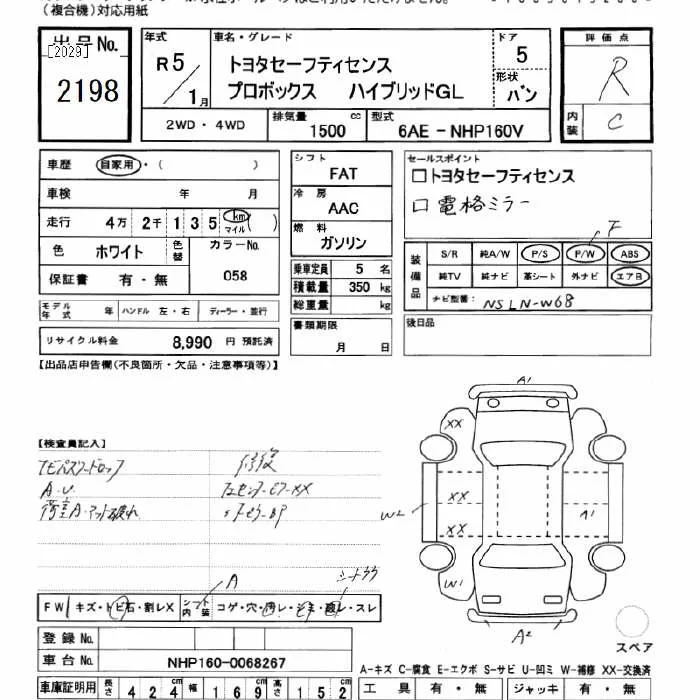 （複合機）対応用紙
出品No.
[2029]
2198
年式
R5/1月
車名・グレード
トヨタセーフティセンス
プロボックス ハイブリッドGL
ドア
5
形状
バン
評価点
R
内装
C
2WD・4WD
排気量 1500 cc
型式 6AE-NHP160V
車歴 自家用・( )
車検 年 月
走行 4万 2千 1 3 5 km マイル ( )
色 ホワイト 色替 カラーNo. 058
保証書 有・無
シフト FAT
冷房 AAC
燃料 ガソリン
乗車定員 5 名
積載量 350 kg
総重量 kg
書類期限
月 日
セールスポイント
□トヨタセーフティセンス
□電格ミラー
F
装備品
S/R 純A/W P/S P/W ABS
純TV 純ナビ 革シート 外ナビ エアB
ナビ型番 NSLN-W68
後日品
モデル年式 年 ハンドル 左・右 ディーラー・並行
リサイクル料金 8,990 円 預託済
【出品店申告欄(不良箇所・欠品・注意事項等)】
【検査員記入】
修復
A.U
A1
XX
XX
XX
W2
A1
W1
A2
シートスレ
A
FW キズ・トビ石・割レX シフト内装 コゲ・穴・汚レ・シミ・破レ・スレ
登録No.
車台No. NHP160-0068267
スペア
A-キズ C-腐食 E-エクボ S-サビ U-凹ミ W-補修 XX-交換済
車庫証明用 長さ 424cm 幅 169cm 高さ 152cm
工具 有・無 ジャッキ 有・無